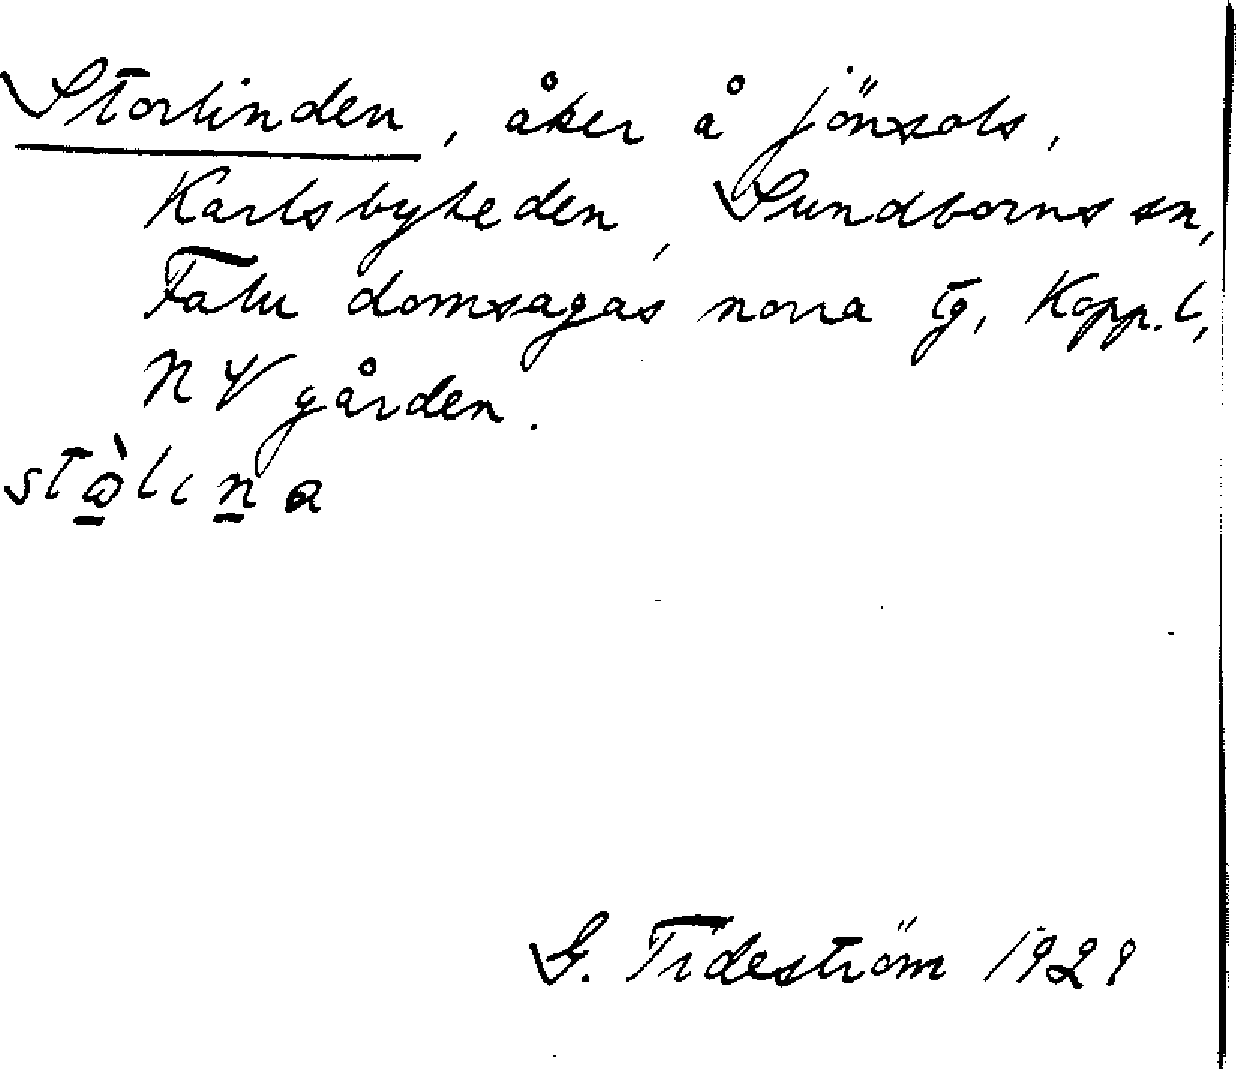 Storlinden, åker å Jönsols,
Karlsbyheden, Sundborns sn,
Falu domsagas norra tg, Kopp. l,
NV gården.
G. Tideström 1929